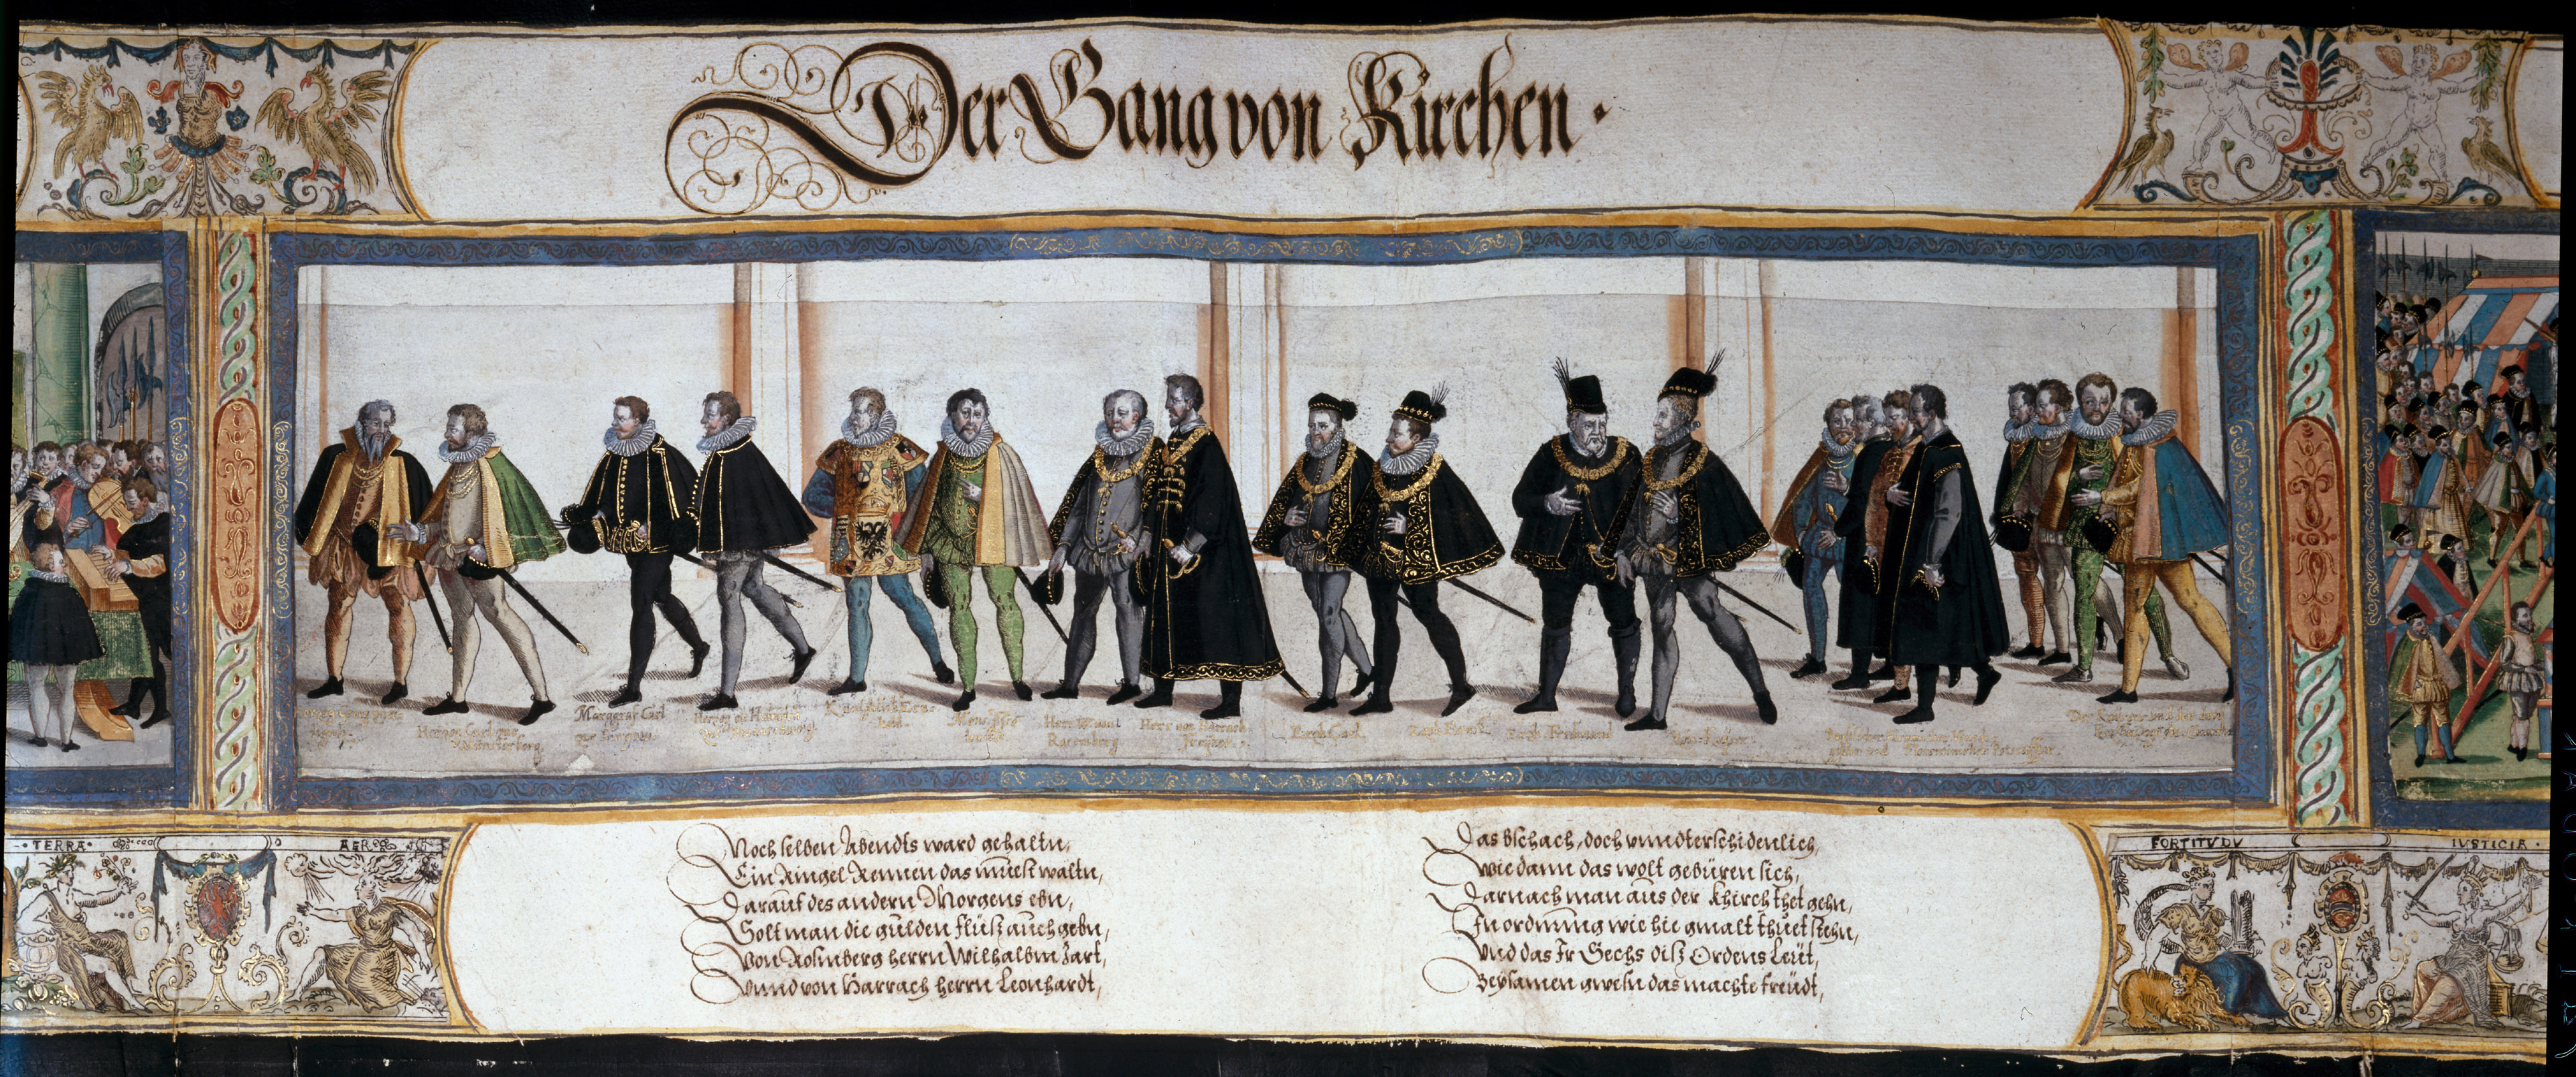 Der Gang von Kirchen.
Marggraf Carl
Herzog Carl von
Münsterberg.
Herr von Harrach
Ertz Carl.
Ertz Ernst
Ertz Ferdinand
Röm: Kaiser.
TERRA
AER
FORTITVDV
IVSTICIA
Noch selben Abendts ward gehaltn,
Ein Ringel Rennen das muest waltn,
Darauf des andern Morgens ebn,
Solt man die gulden flüß auch gebn,
Von Rosnberg herrn Wilhalbm zart,
Vnnd von Harrach herrn Leonhardt,
Das bschach, doch vnndterschidenlich,
Wie dann das wolt gebüren sich,
Darnach man aus der Khirch thet gehn,
In ordnung wie hie gmalt thuet stehn,
Vnd das Ir Sechs diß Ordens Leüt,
Beysamen gwesn das machte freüdt,